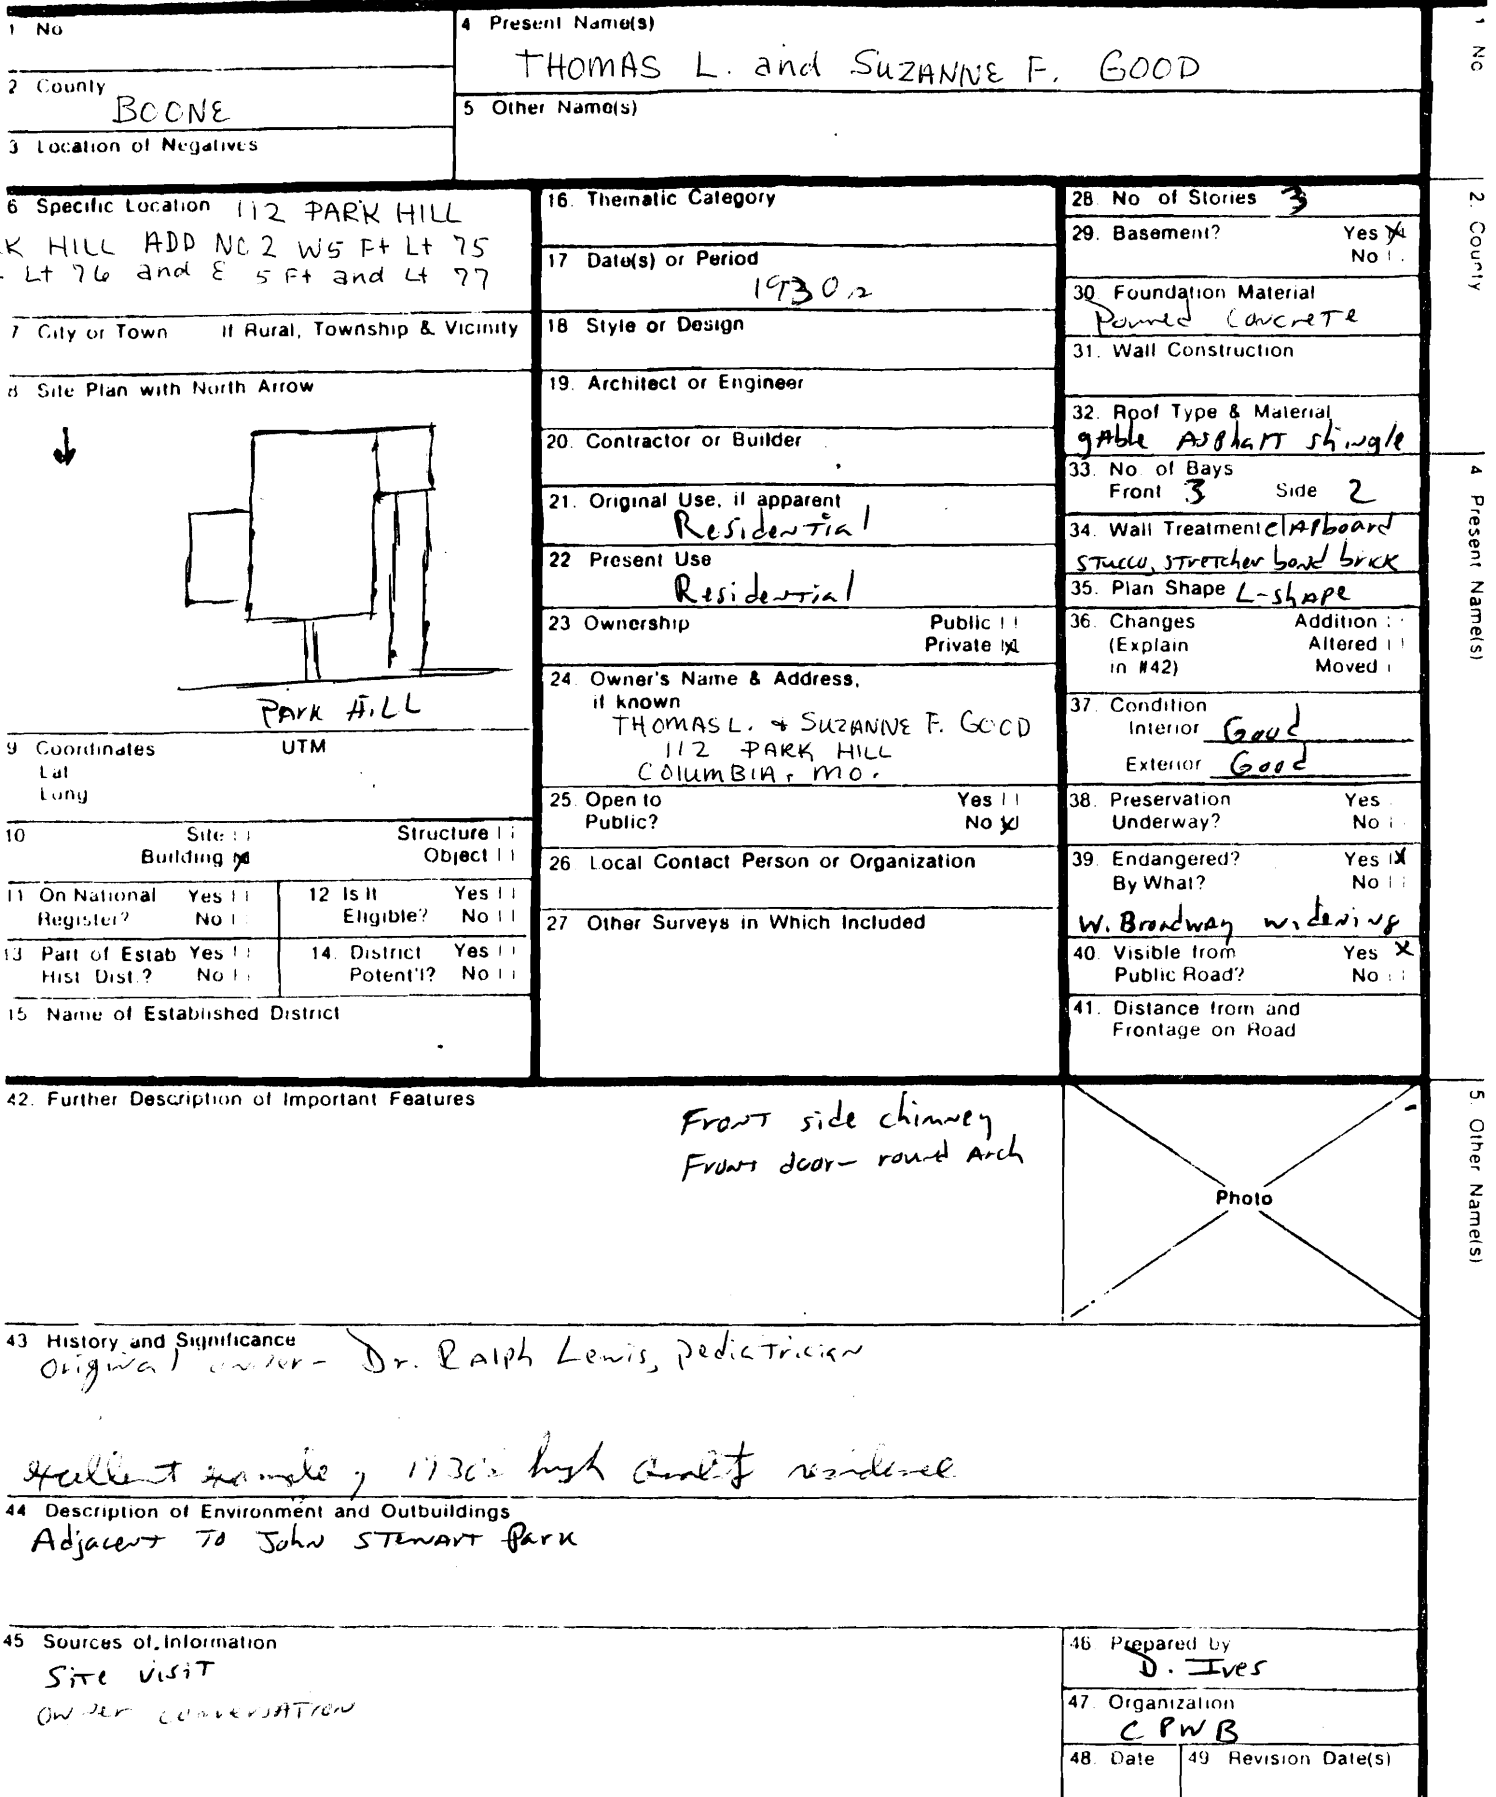 1 No
4 Present Name(s)
THOMAS L. and SUZANNE F. GOOD
2 County
BOONE
5 Other Name(s)
3 Location of Negatives
6 Specific Location 112 PARK HILL
K HILL ADD NO 2 W5 Ft Lt 75
Lt 76 and E 5 Ft and Lt 77
7 City or Town If Rural, Township & Vicinity
8 Site Plan with North Arrow
PARK HILL
9 Coordinates UTM
Lat
Long
10 Site Structure
Building [X] Object
11 On National Register? Yes No
12 Is It Eligible? Yes No
13 Part of Estab Hist Dist.? Yes No
14. District Potent'l? Yes No
15 Name of Established District
16. Thematic Category
17 Date(s) or Period
1930s
18 Style or Design
19. Architect or Engineer
20. Contractor or Builder
21. Original Use, if apparent
Residential
22 Present Use
Residential
23 Ownership Public
Private [X]
24. Owner's Name & Address,
if known
THOMAS L. & SUZANNE F. GOOD
112 PARK HILL
COLUMBIA, MO.
25. Open to Yes
Public? No [X]
26. Local Contact Person or Organization
27 Other Surveys in Which Included
28. No of Stories 3
29. Basement? Yes [X]
No
30 Foundation Material
Poured Concrete
31. Wall Construction
32. Roof Type & Material
gable Asphalt shingle
33. No. of Bays
Front 3 Side 2
34. Wall Treatment clapboard
stucco, stretcher bond brick
35. Plan Shape L-shape
36. Changes Addition
(Explain Altered
in #42) Moved
37. Condition
Interior Good
Exterior Good
38. Preservation Yes
Underway? No
39. Endangered? Yes [X]
By What? No
W. Broadway widening
40. Visible from Yes X
Public Road? No
41. Distance from and
Frontage on Road
42. Further Description of Important Features
Front side chimney
Front door- round Arch
Photo
43 History and Significance
Original owner- Dr. Ralph Lewis, pediatrician
excellent example of 1930's high quality residence
44 Description of Environment and Outbuildings
Adjacent To John Stewart Park
45 Sources of Information
Site visit
owner conversation
46 Prepared by
D. Ives
47. Organization
CPWB
48. Date 49 Revision Date(s)
1 No
2. County
4 Present Name(s)
5. Other Name(s)